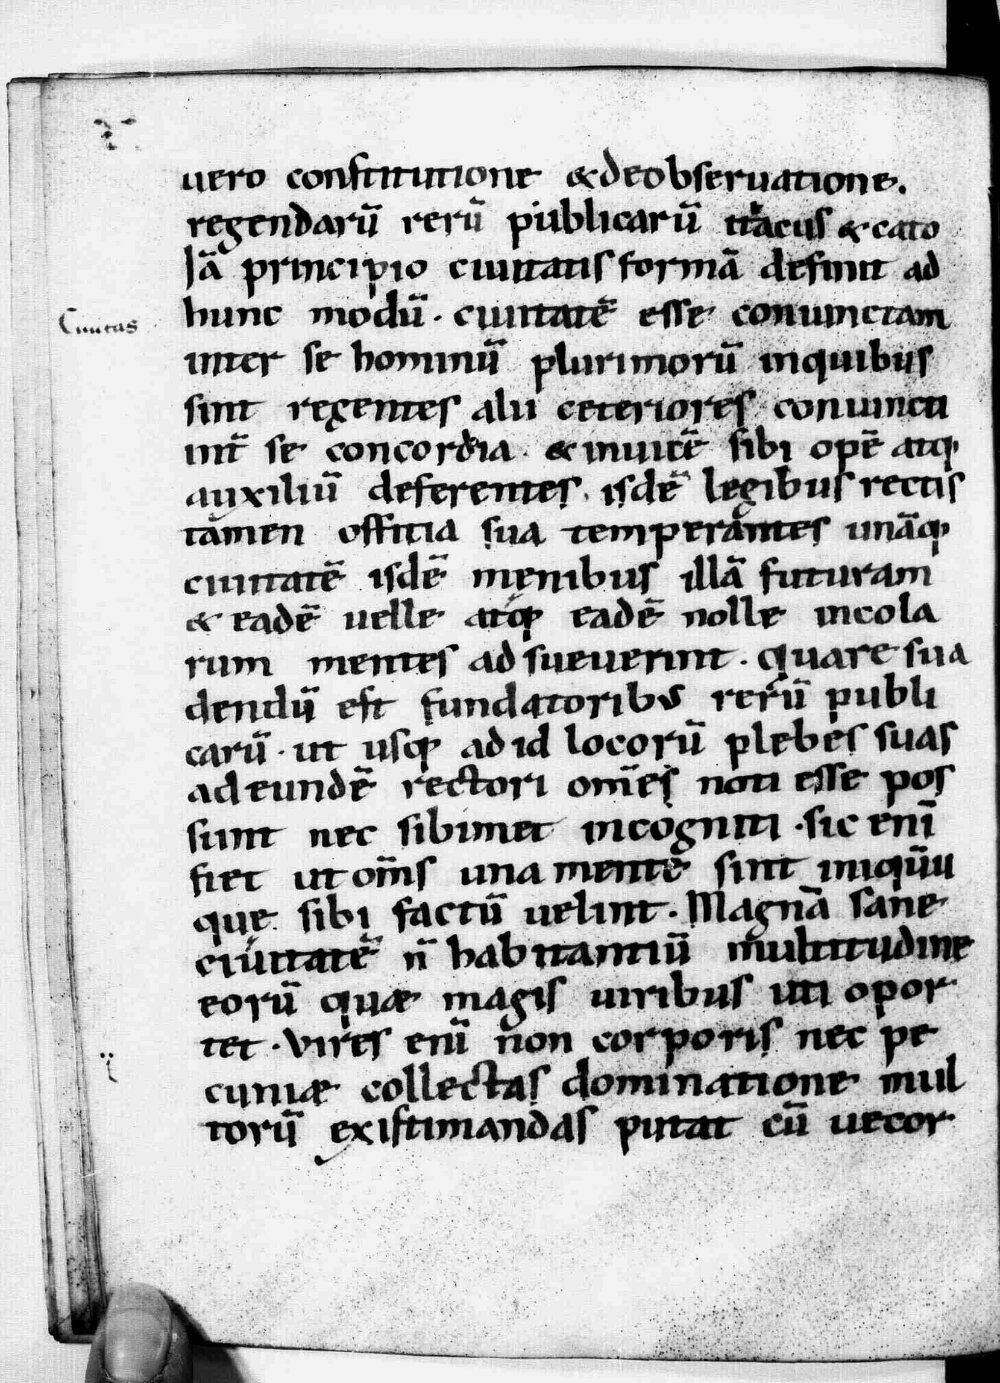 uero constitutione & de obseruatione.
regendarū rerū publicarū tracus & cato
Iā principio ciuitatis formā definit ad
Ciuitas
hunc modū. ciuitatē esse coniunctam
inter se hominū plurimorū inquibus
sint regentes alii ceteriores coniuncti
int̄ se concordia. & inuicē sibi opē atq;
auxiliū deferentes. isdē legibus rectis
tamen offitia sua temperantes unāq;
ciuitatē isdē męnibus illā futuram
& eadē uelle atq; eadē nolle incola
rum mentes adsueuerint. quare sua
dendū est fundatoribus rerū publi
carū. ut usq; ad id locorū plebes suas
adeundē rectori om̄es noti esse pos
sunt nec sibimet incogniti. sic enī
fiet ut om̄s una mente sint iniqūu
que sibi factū uelint. Magnā sane
ciuitatē n̄ habitantiū multitudine
eorū quæ magis uiribus uti opor
tet. Vires enī non corporis nec pe
cuniæ collectas dominatione mul
torū existimandas putat cū uecor